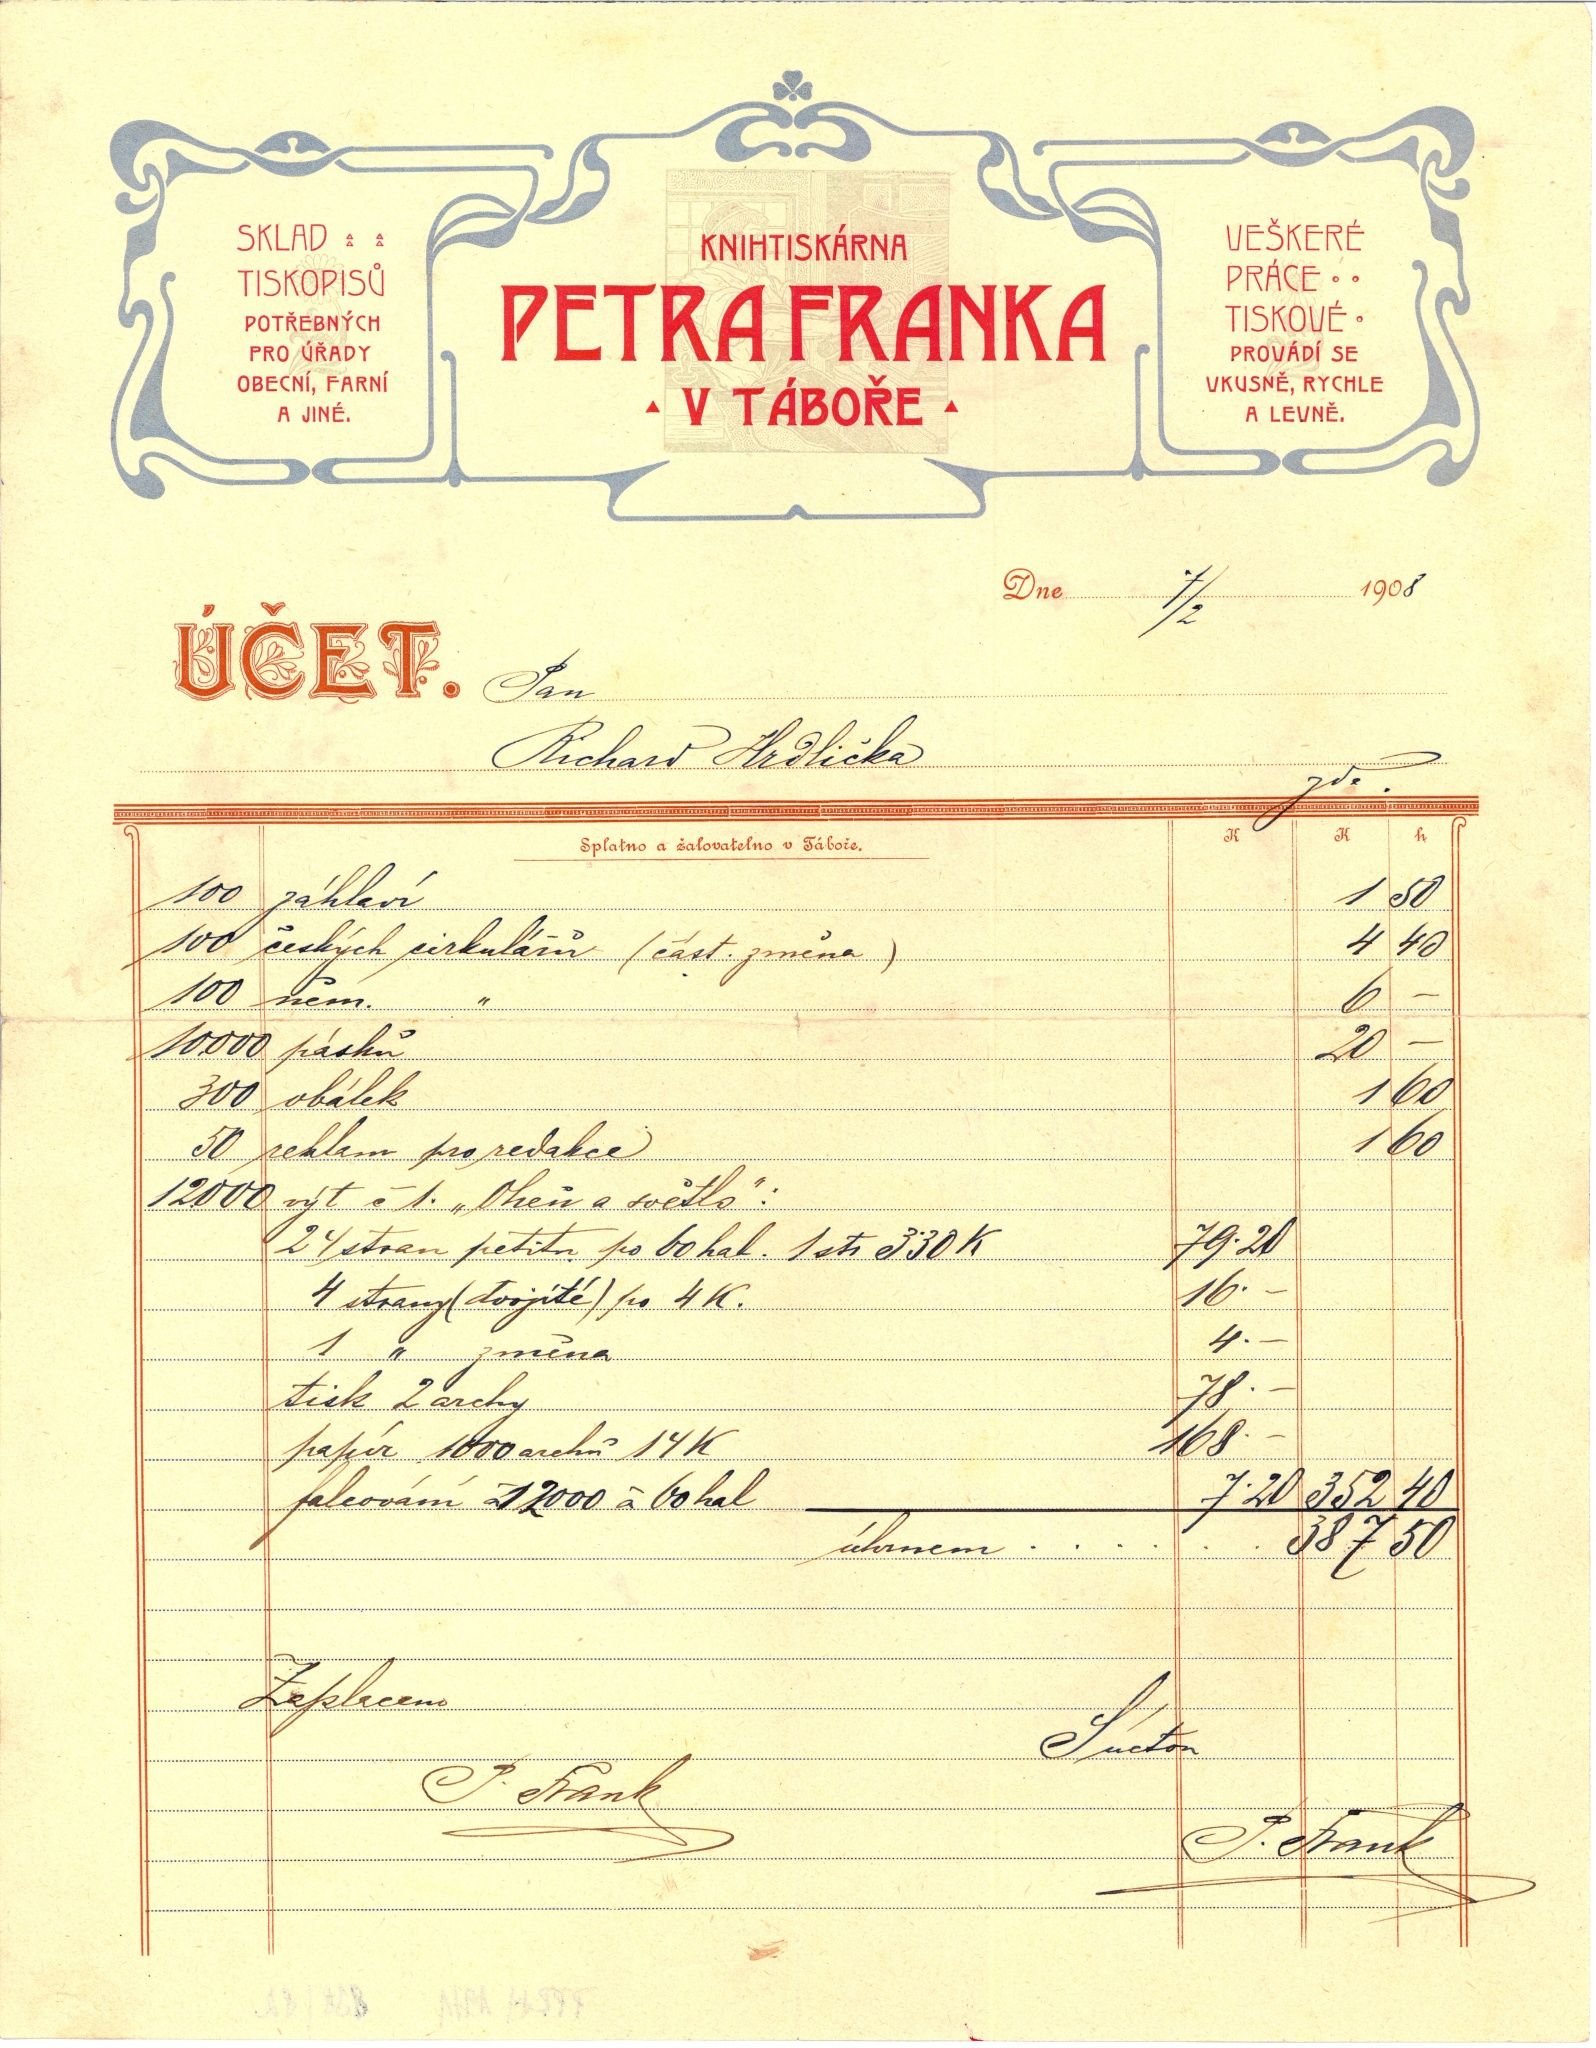 SKLAD
TISKOPISŮ
POTŘEBNÝCH
PRO ÚŘADY
OBECNÍ, FARNÍ
A JINÉ.
KNIHTISKÁRNA
PETRA FRANKA
V TÁBOŘE
VEŠKERÉ
PRÁCE
TISKOVÉ
PROVÁDÍ SE
VKUSNĚ, RYCHLE
A LEVNĚ.
Dne 7/2 1908
ÚČET. Pan
Richard Hrdlička
zde.
Splatno a žalovatelno v Táboře. K K h
100 záhlaví 1 50
100 českých cirkulářů (část. změna) 4 40
100 něm. " 6 —
10.000 pásků 20 —
300 obálek 1 60
50 reklam pro redakce 1 60
12.000 výt č 1. „Oheň a světlo":
24 stran petitu po 60 hal. 1 str 3.30 K 79.20
4 strany (dvojité) po 4 K. 16.—
1 " změna 4.—
tisk 2 archy 78.—
papír 1000 archů 14 K 168.—
falcování 12000 à 60 hal 7.20 352 40
úhrnem . . . . . . 387 50
Zaplaceno
S úctou
P. Frank
P. Frank